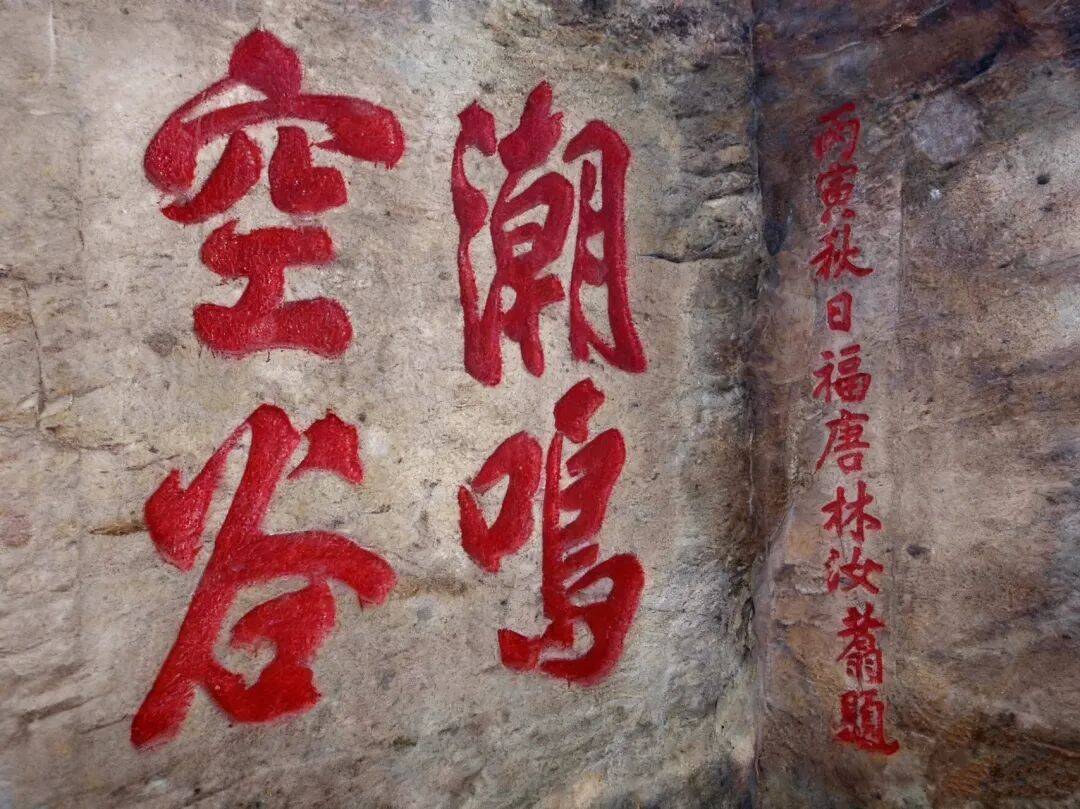 丙寅秋日福唐林汝翥題
潮鳴
空谷